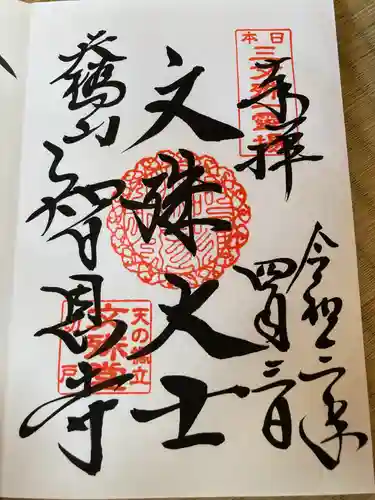 奉拝
日本三文殊霊場
令和二年
四月三日
文殊大士
天橋山
智恩寺
天の橋立
文殊堂